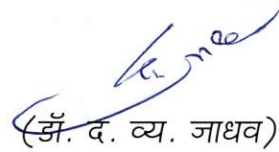 (डॉ. द. व्य. जाधव)